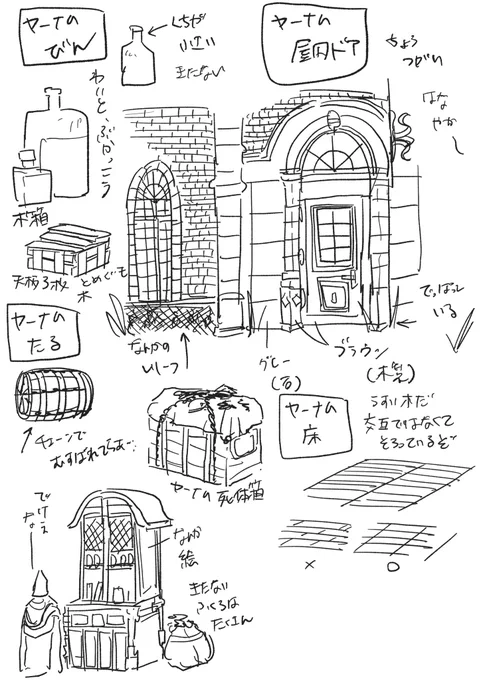 ヤーナムのびん
くちが
小さい
きたない
わいと、ぶかっこう
ヤーナムの
屋内ドア
ちょう
つがい
はな
やか
し
木箱
天板3枚
とめぐも
木
ヤーナムの
たる
チェーンで
むすばれてらあ…
なんかの
いしつ
グレー
(石)
ブラウン
(木製)
でっぱって
いる
ヤーナムの
床
うすい木だ
交互ではなくて
そろっているぞ
×
○
ヤーナムの死体箱
でけえ
なー
なんか
絵
きたない
ふくろは
たくさん